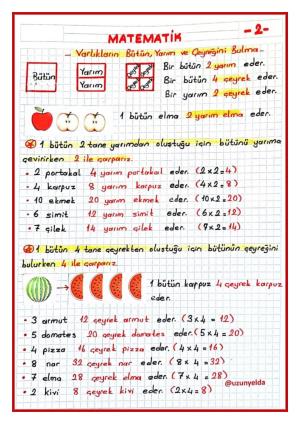 MATEMATİK
-2-
Varlıkların Bütün, Yarım ve Çeyreğini Bulma
Bütün
Yarım
Yarım
Bir bütün 2 yarım eder.
Bir bütün 4 çeyrek eder.
Bir yarım 2 çeyrek eder.
1 bütün elma 2 yarım elma eder.
1 bütün 2 tane yarımdan oluştuğu için bütünü yarıma
çevirirken 2 ile çarparız.
• 2 portakal 4 yarım portakal eder. (2x2=4)
• 4 karpuz 8 yarım karpuz eder. (4x2=8)
• 10 ekmek 20 yarım ekmek eder. (10x2=20)
• 6 simit 12 yarım simit eder. (6x2=12)
• 7 çilek 14 yarım çilek eder. (7x2=14)
1 bütün 4 tane çeyrekten oluştuğu için bütünün çeyreğini
bulurken 4 ile çarparız.
1 bütün karpuz 4 çeyrek karpuz
eder.
• 3 armut 12 çeyrek armut eder. (3x4=12)
• 5 domates 20 çeyrek domates eder. (5x4=20)
• 4 pizza 16 çeyrek pizza eder. (4x4=16)
• 8 nar 32 çeyrek nar eder. (8x4=32)
• 7 elma 28 çeyrek elma eder. (7x4=28)
• 2 kivi 8 çeyrek kivi eder. (2x4=8)
@uzunyelda